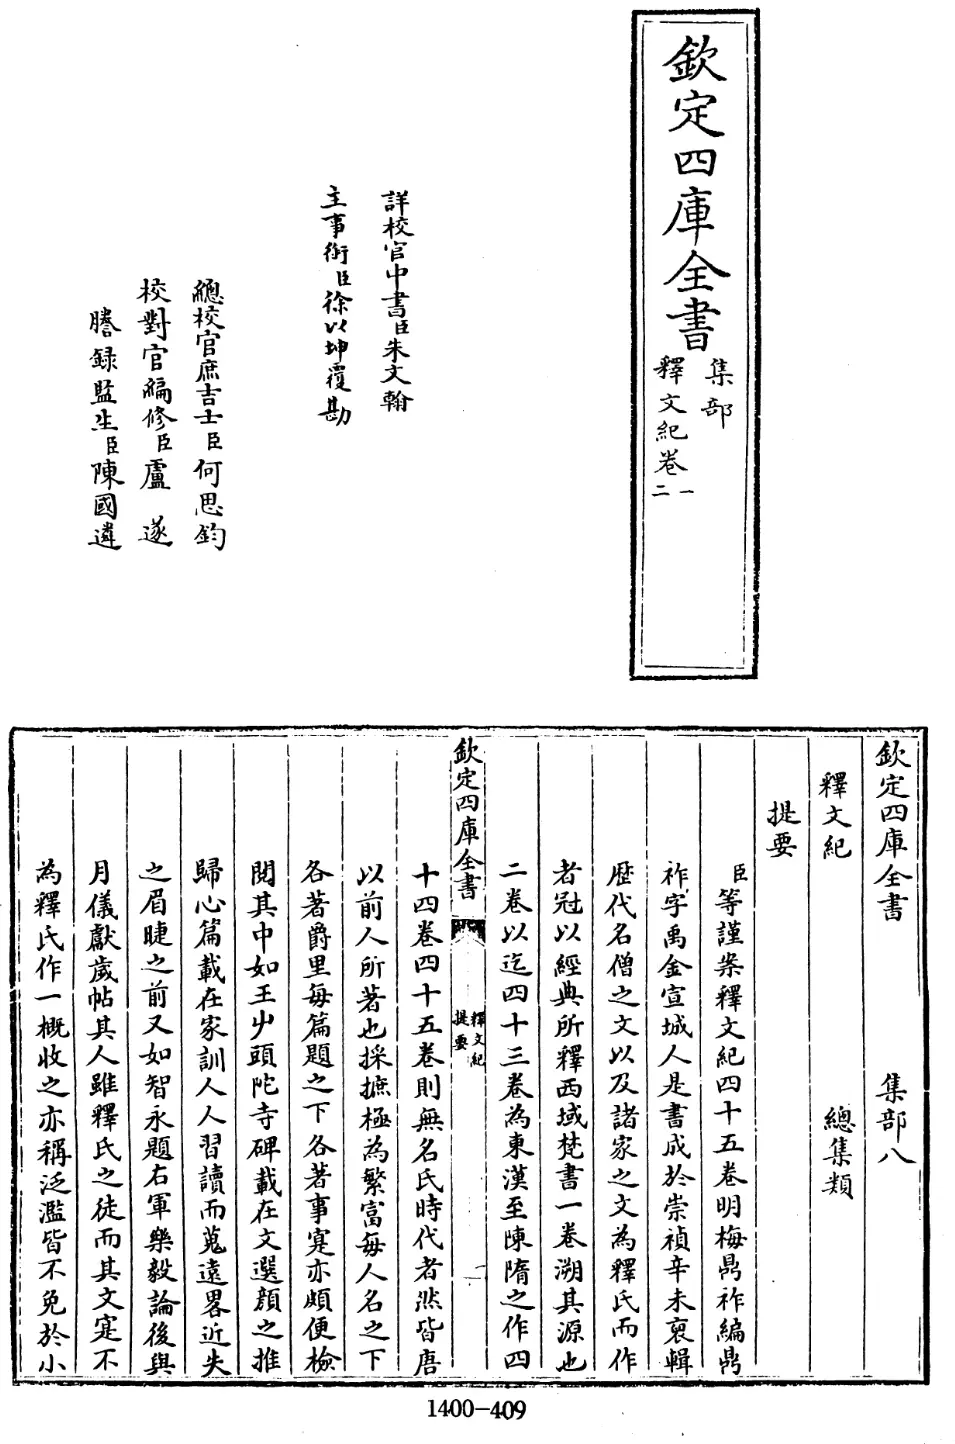 欽定四庫全書
集部
釋文紀卷一
二
詳校官中書臣朱文翰
主事銜臣徐以坤覆勘
總校官庶吉士臣何思鈞
校對官編修臣盧遂
謄録監生臣陳國遴
欽定四庫全書 集部八
釋文紀 總集類
提要
臣等謹案釋文紀四十五卷明梅鼎祚編鼎
祚字禹金宣城人是書成於崇禎辛未裒輯
歴代名僧之文以及諸家之文為釋氏而作
者冠以經典所釋西域梵書一卷溯其源也
二卷以迄四十三卷為東漢至陳隋之作四
欽定四庫全書
釋文紀
提要
一
十四卷四十五卷則無名氏時代者然皆唐
以前人所著也採摭極為繁富每人名之下
各著爵里每篇題之下各著事寔亦頗便檢
閱其中如王屮頭陀寺碑載在文選顏之推
歸心篇載在家訓人人習讀而蒐遠畧近失
之眉睫之前又如智永題右軍樂毅論後與
月儀獻歲帖其人雖釋氏之徒而其文寔不
為釋氏作一概收之亦稱泛濫皆不免於小
1400-409